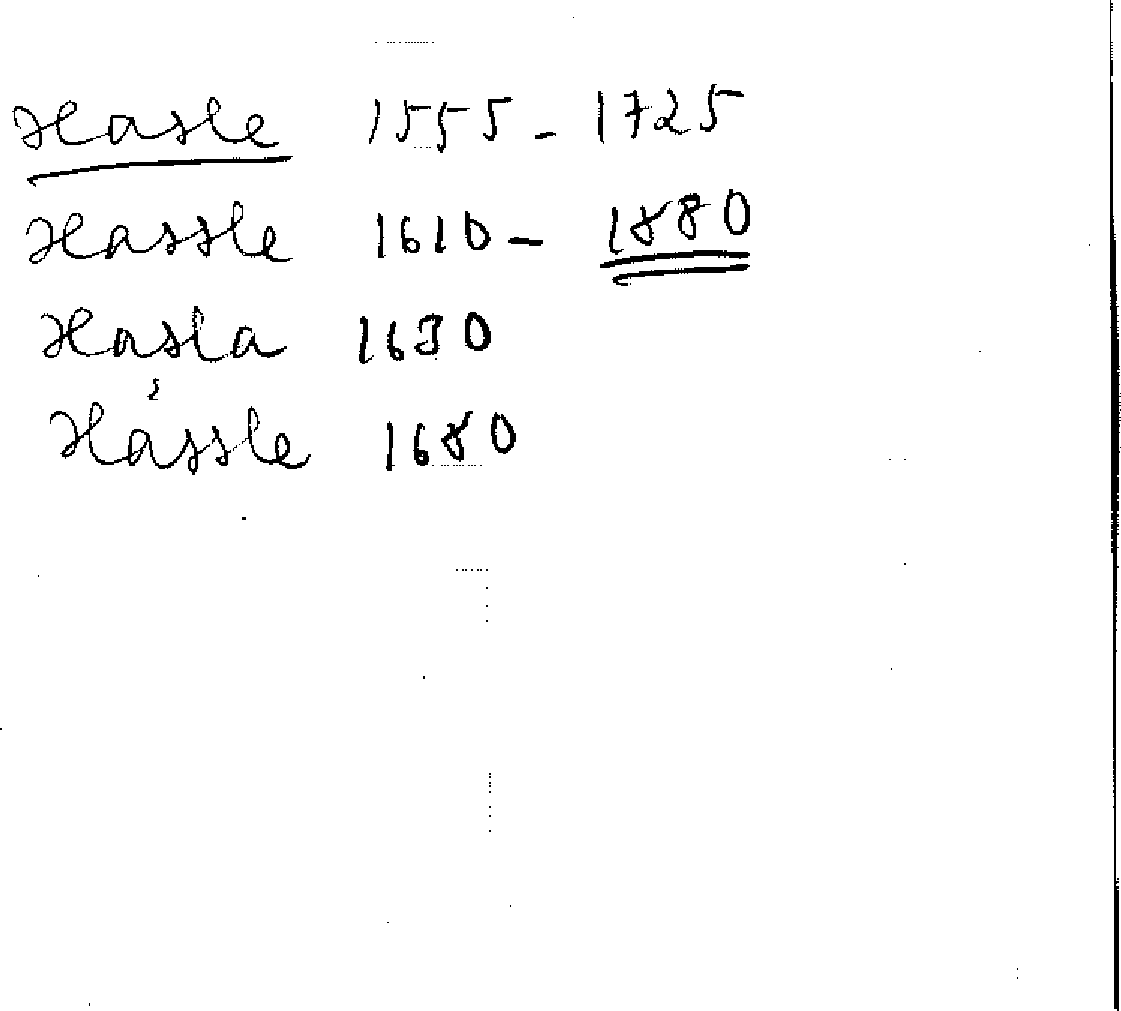 Hasle 1555 - 1725
Hassle 1610 - 1880
Hasla 1630
Hássle 1680